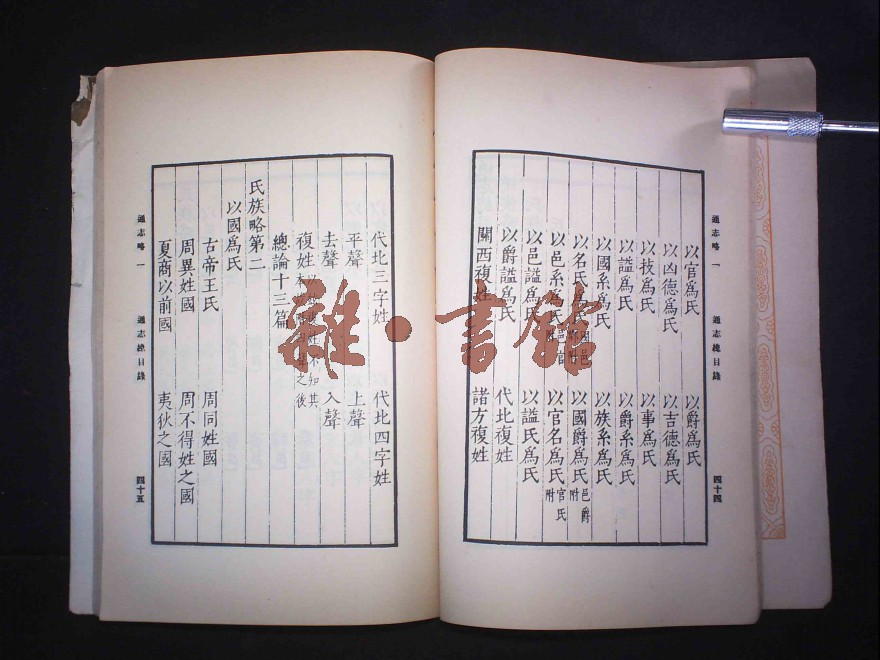 通志略 一 通志總目錄 四十四
以官爲氏 以爵爲氏
以凶德爲氏 以吉德爲氏
以技爲氏 以事爲氏
以謚爲氏 以爵系爲氏
以國系爲氏 以族系爲氏
以名氏爲氏 國邑附 以國爵爲氏 邑爵附
以邑系爲氏 邑官附 以官名爲氏 官氏附
以邑謚爲氏 以謚氏爲氏
以爵謚爲氏 代北複姓
關西複姓 諸方複姓
代北三字姓 代北四字姓
平聲 上聲
去聲 入聲
複姓 姓不知其
之後
總論十三篇
氏族略第二
以國爲氏
古帝王氏 周同姓國
周異姓國 周不得姓之國
夏商以前國 夷狄之國
通志略 一 通志總目錄 四十五
雜·書館